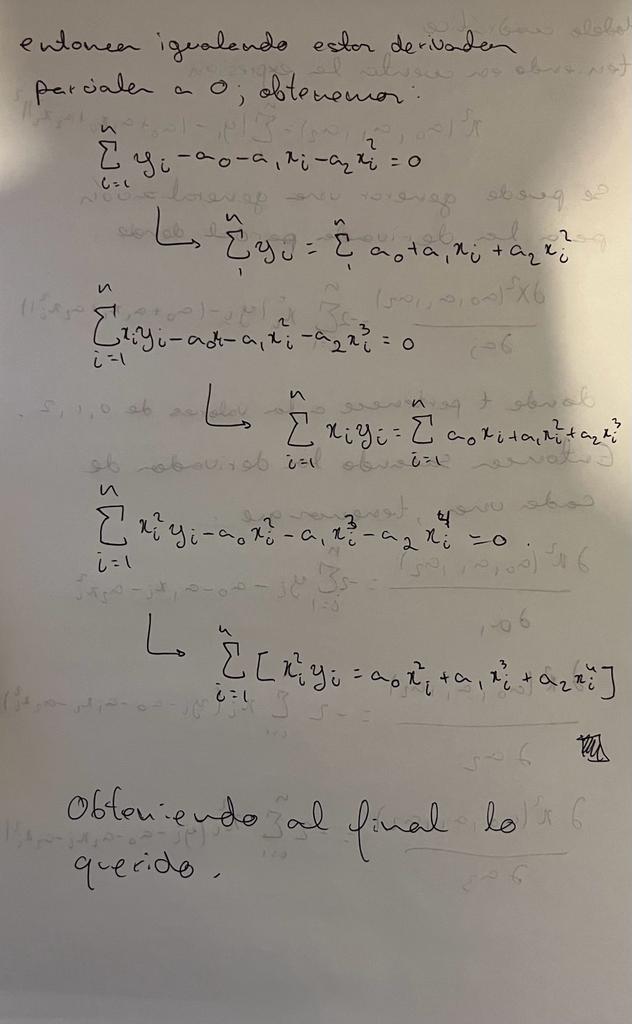 entonces igualando estas derivadas
parciales a 0; obtenemos:
n
∑ yᵢ - a₀ - a₁xᵢ - a₂xᵢ² = 0
i=1
↳ ⁿ∑₁ yᵢ = ⁿ∑₁ a₀ + a₁xᵢ + a₂xᵢ²
n
∑ xᵢyᵢ - a₀x - a₁xᵢ² - a₂xᵢ³ = 0
i=1
n n
↳ ∑ xᵢyᵢ = ∑ a₀xᵢ + a₁xᵢ² + a₂xᵢ³
i=1 i=1
n
∑ xᵢ²yᵢ - a₀xᵢ² - a₁xᵢ³ - a₂xᵢ⁴ = 0.
i=1
n
↳ ∑ [xᵢ²yᵢ = a₀xᵢ² + a₁xᵢ³ + a₂xᵢ⁴]
i=1
Obteniendo al final lo
querido.